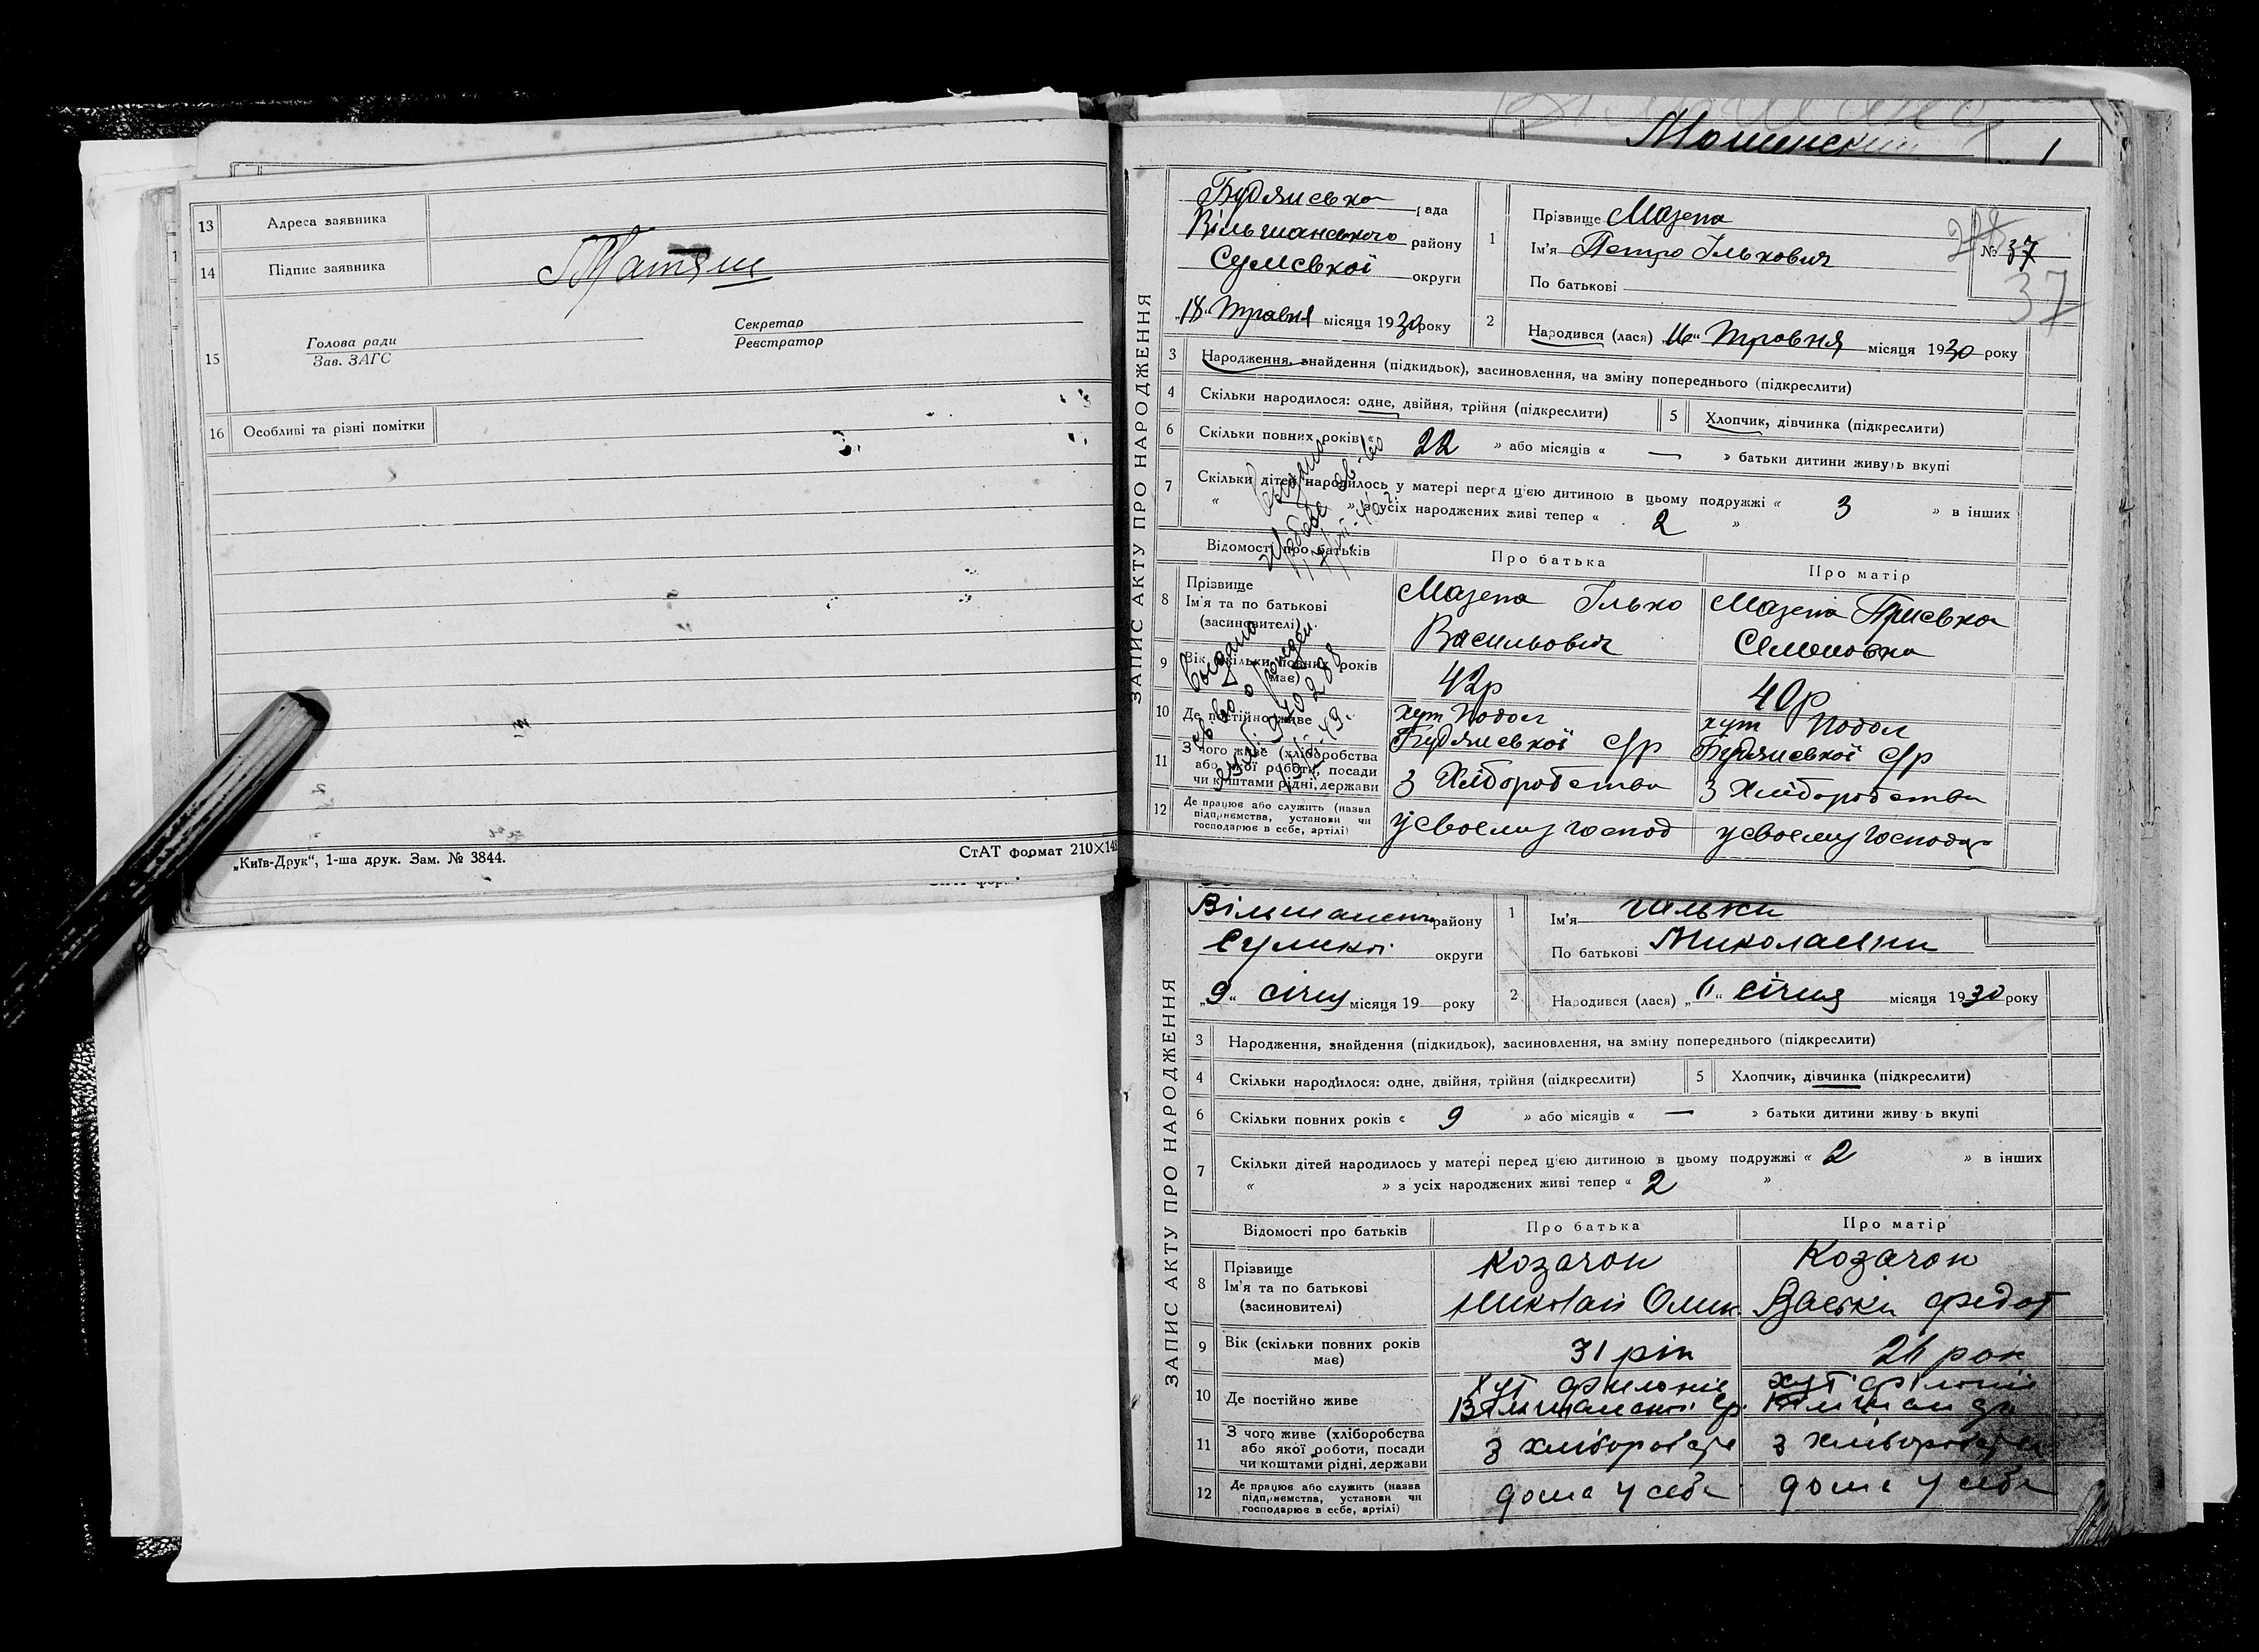 13 Адреса заявника
14 Підпис заявника
Матяш
15 Голова ради
Зав. ЗАГС
Секретар
Реєстратор
16 Особливі та різні помітки
„Київ-Друк“, 1-ша друк. Зам. № 3844.
СтАТ формат 210×14
1
ЗАПИС АКТУ ПРО НАРОДЖЕННЯ
Будянська рада
Вільшанського району
Сумської округи
„18“ травня місяця 1930 року
1 Прізвище Мазепа
Ім'я Петро Ількович
По батькові
№ 37
37
2 Народився (лася) „16“ травня місяця 1930 року
3 Народження, знайдення (підкидьок), засиновлення, на зміну попереднього (підкреслити)
4 Скільки народилося: одне, двійня, трійня (підкреслити)
5 Хлопчик, дівчинка (підкреслити)
6 Скільки повних років « 22 » або місяців « — » батьки дитини живуть вкупі
7 Скільки дітей народилось у матері перед цією дитиною в цьому подружжі « 3 » в інших
« » з усіх народжених живі тепер « 2 »
Відомості про батьків Про батька Про матір
8 Прізвище
Ім'я та по батькові
(засиновителі)
Мазепа Ілько
Васильович
Мазепа Приська
Семеновна
9 Вік (скільки повних років має) 42р 40р
10 Де постійно живе
хут Подол
Будянської с/р
хут Подол
Будянської с/р
11 З чого живе (хліборобства
або якої роботи, посади
чи коштами рідні, держави
З Хліборобства
З Хліборобства
12 Де працює або служить (назва
підприємства, установи чи
господарює в себе, артілі)
у своєму господ
у своєму господар
ЗАПИС АКТУ ПРО НАРОДЖЕННЯ
району
округи
„9“ січня місяця 19 року
1 Ім'я
По батькові Миколаевни
2 Народився (лася) „6“ січня місяця 1930 року
3 Народження, знайдення (підкидьок), засиновлення, на зміну попереднього (підкреслити)
4 Скільки народилося: одне, двійня, трійня (підкреслити)
5 Хлопчик, дівчинка (підкреслити)
6 Скільки повних років « 9 » або місяців « — » батьки дитини живуть вкупі
7 Скільки дітей народилось у матері перед цією дитиною в цьому подружжі « 2 » в інших
« » з усіх народжених живі тепер « 2 »
Відомості про батьків Про батька Про матір
8 Прізвище
Ім'я та по батькові
(засиновителі)
Козачок
Козачок
Федот
9 Вік (скільки повних років
має)
31 рік
26 рок
10 Де постійно живе
хут
хут
11 З чого живе (хліборобства
або якої роботи, посади
чи коштами рідні, держави
з
з
12 Де працює або служить (назва
підприємства, установи чи
господарює в себе, артілі)
дома у себе
дома у себе